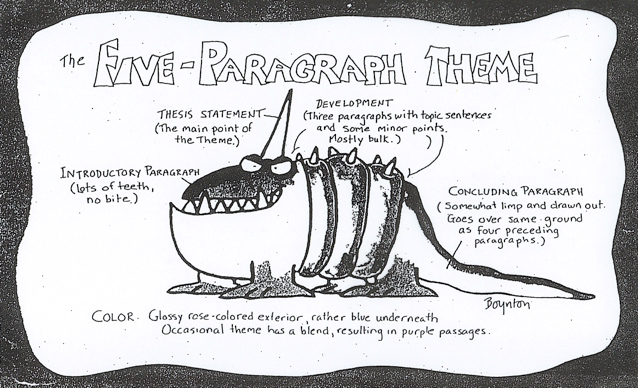 The FIVE-PARAGRAPH THEME
THESIS STATEMENT
(The main point of
the Theme.)
DEVELOPMENT
(Three paragraphs with topic sentences
and some minor points.
Mostly bulk.)
INTRODUCTORY PARAGRAPH
(lots of teeth,
no bite.)
CONCLUDING PARAGRAPH
(Somewhat limp and drawn out.
Goes over same ground
as four preceding
paragraphs.)
Boynton
COLOR. Glossy rose-colored exterior, rather blue underneath
Occasional theme has a blend, resulting in purple passages.